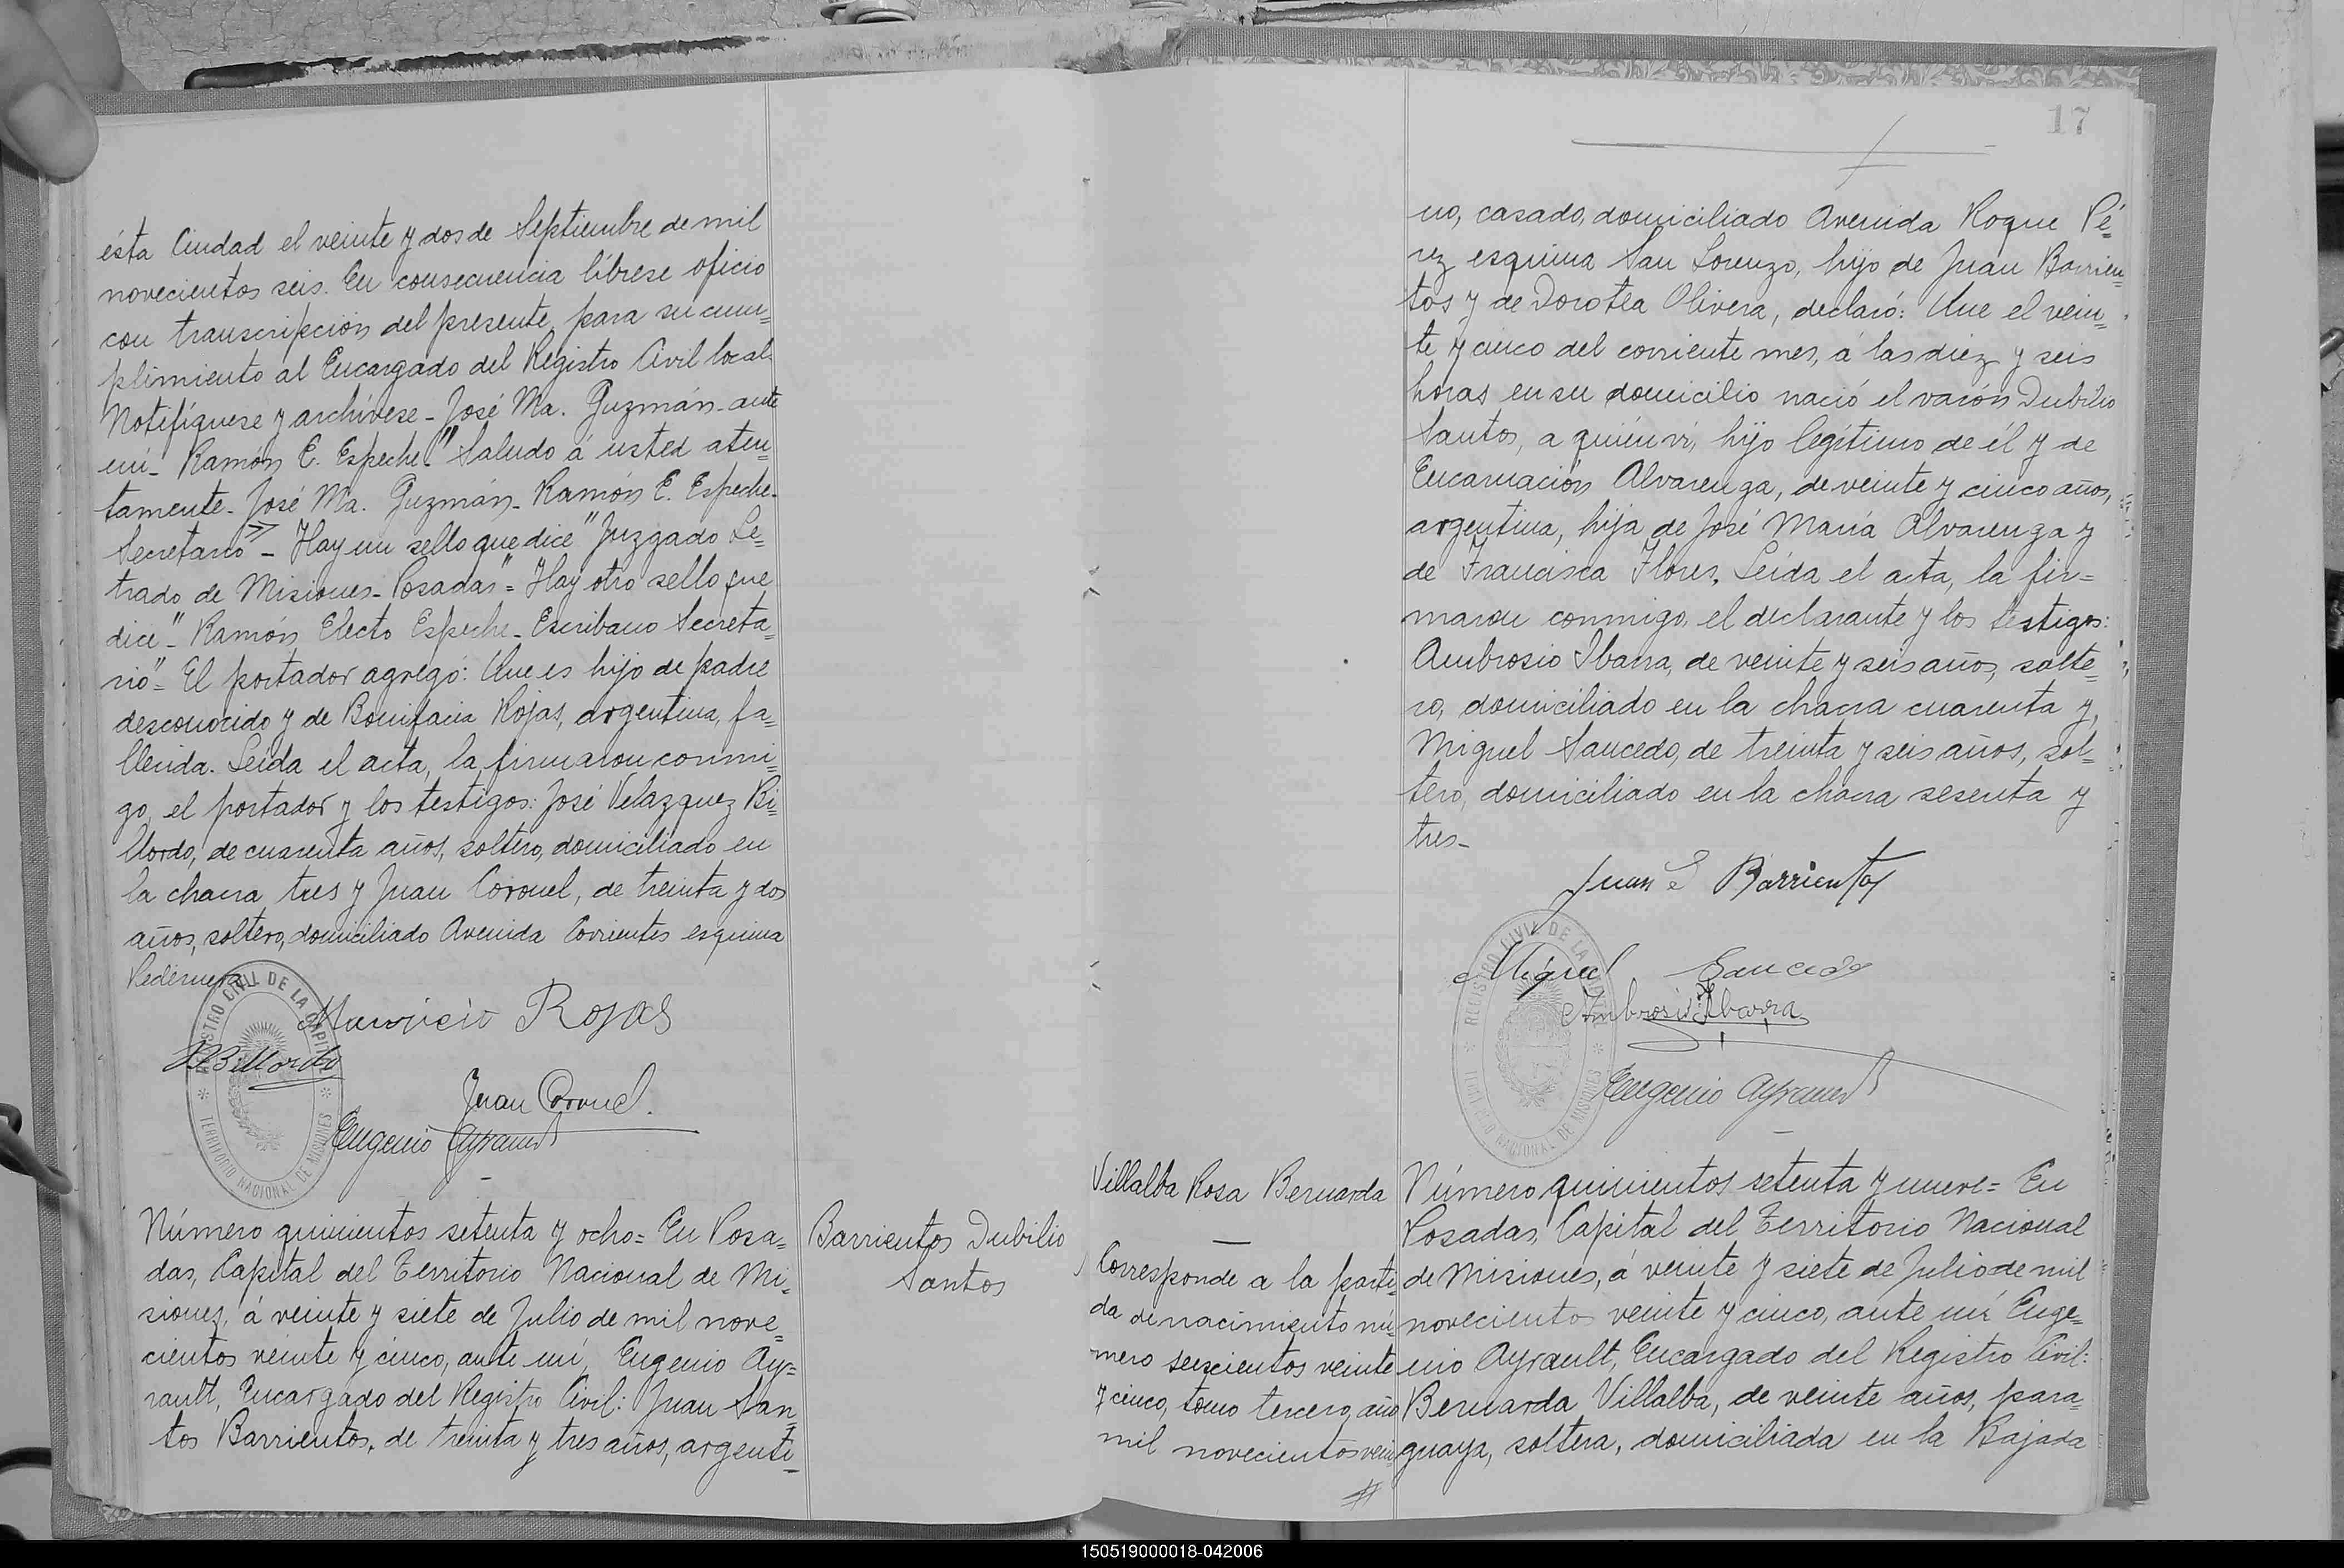 ésta Ciudad el veinte y dos de Septiembre de mil
novecientos seis. En consecuencia líbrese oficio
con transcripción del presente, para su cum=
plimiento al Encargado del Registro Civil local.
Notifíquese y archívese - José Ma. Guzmán - ante
mí - Ramón E. Espeche." Saludo á usted aten
tamente - José Ma. Guzmán - Ramón E. Espeche.
Secretario" - Hay un sello que dice "Juzgado Le=
trado de Misiones - Posadas" = Hay otro sello que
dice " Ramón Electo Espeche - Escribano Secreta=
rio" = El portador agregó: Que es hijo de padre
desconocido y de Bonifacia Rojas, argentina, fa=
llecida. Leída el acta, la firmaron conmi=
go, el portador y los testigos: José Velazquez Bi=
llordo, de cuarenta años, soltero, domiciliado en
la chacra tres y Juan Coronel, de treinta y dos
años, soltero, domiciliado Avenida Corrientes esquina
Pedernera
Mauricio Rojas
Billordo
Juan Coronel.
Eugenio Ayrault
REGISTRO CIVIL DE LA CAPITAL
TERRITORIO NACIONAL DE MISIONES
Barrientos Dubilio
Santos
Número quinientos setenta y ocho = En Posa=
das, Capital del Territorio Nacional de Mi=
siones, á veinte y siete de Julio de mil nove=
cientos veinte y cinco, ante mí, Eugenio Ay=
rault, Encargado del Registro Civil: Juan San
tos Barrientos, de treinta y tres años, argenti
17
no, casado, domiciliado Avenida Roque Pé=
rez esquina San Lorenzo, hijo de Juan Barrien
tos y de Dorotea Olivera, declaró: Que el vein=
te y cinco del corriente mes, á las diez y seis
horas en su domicilio nació el varón Dubilio
Santos, a quién ví, hijo legítimo de él y de
Encarnación Alvarenga, de veinte y cinco años,
argentina, hija de José María Alvarenga y
de Francisca Flores. Leída el acta, la fir=
maron conmigo, el declarante y los testigos:
Ambrosio Ibarra, de veinte y seis años, solte=
ro, domiciliado en la chacra cuarenta y,
Miguel Saucedo, de treinta y seis años, sol=
tero, domiciliado en la chacra sesenta y
tres -
Juan S Barrientos
Miguel Saucedo
Ambrosio Ibarra
Eugenio Ayrault
REGISTRO CIVIL DE LA CAPITAL
TERRITORIO NACIONAL DE MISIONES
Villalba Rosa Bernarda
Corresponde a la parti=
da de nacimiento nú=
mero seiscientos veinte
y cinco, tomo tercero, año
mil novecientos vein
Número quinientos setenta y nueve = En
Posadas, Capital del Territorio Nacional
de Misiones, á veinte y siete de Julio de mil
novecientos veinte y cinco, ante mí Euge=
nio Ayrault, Encargado del Registro Civil:
Bernarda Villalba, de veinte años, para=
guaya, soltera, domiciliada en la Bajada
150519000018-042006